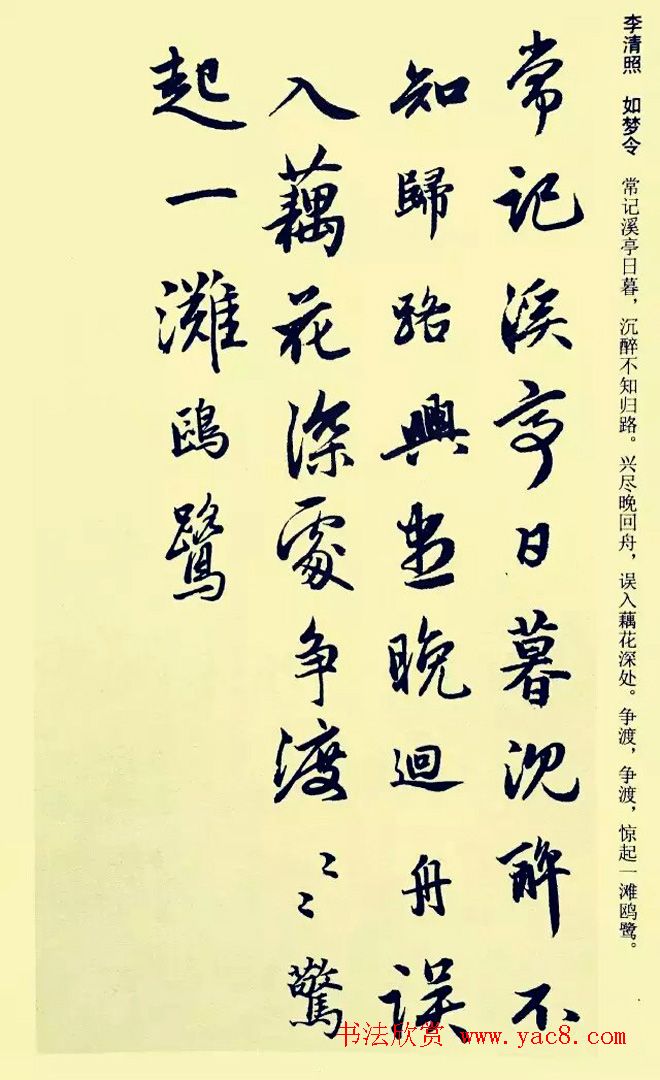 李清照 如梦令 常记溪亭日暮，沉醉不知归路。兴尽晚回舟，误入藕花深处。争渡，争渡，惊起一滩鸥鹭。
常記溪亭日暮沈醉不
知歸路興盡晚迴舟誤
入藕花深處争渡〻〻驚
起一灘鷗鷺
书法欣赏 www.yac8.com